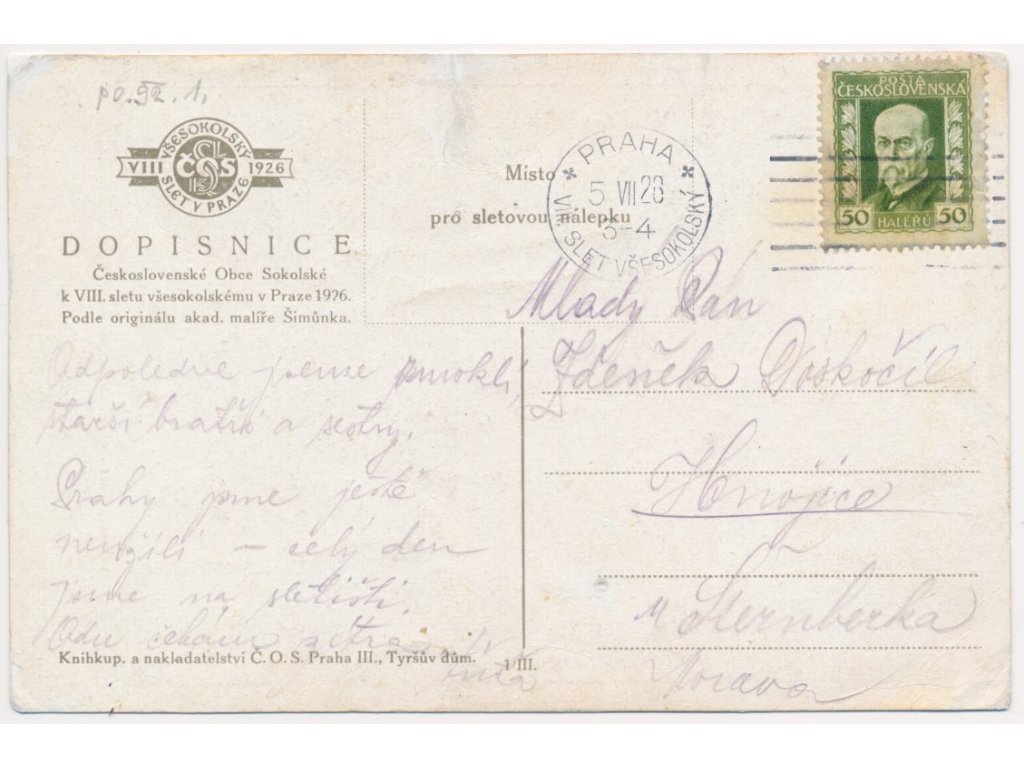 po. 1.
VŠESOKOLSKÝ
VIII ČOS 1926
SLET V PRAZE
DOPISNICE
Československé Obce Sokolské
k VIII. sletu všesokolskému v Praze 1926.
Podle originálu akad. malíře Šimůnka.
Místo
pro sletovou nálepku
PRAHA
5 VII 26
3-4
VIII. SLET VŠESOKOLSKÝ
POŠTA
ČESKOSLOVENSKÁ
50 HALÉŘŮ 50
Odpoledne jsme zmokli,
starší bratři a sestry.
Prahy jsme ještě
neužili – celý den
jsme na sletišti.
čekám
Knihkup. a nakladatelství Č. O. S. Praha III., Tyršův dům.
1/III.
Mlady Pán
Zdeněk Doskočil
Hnojice
u Šternberka
Morava